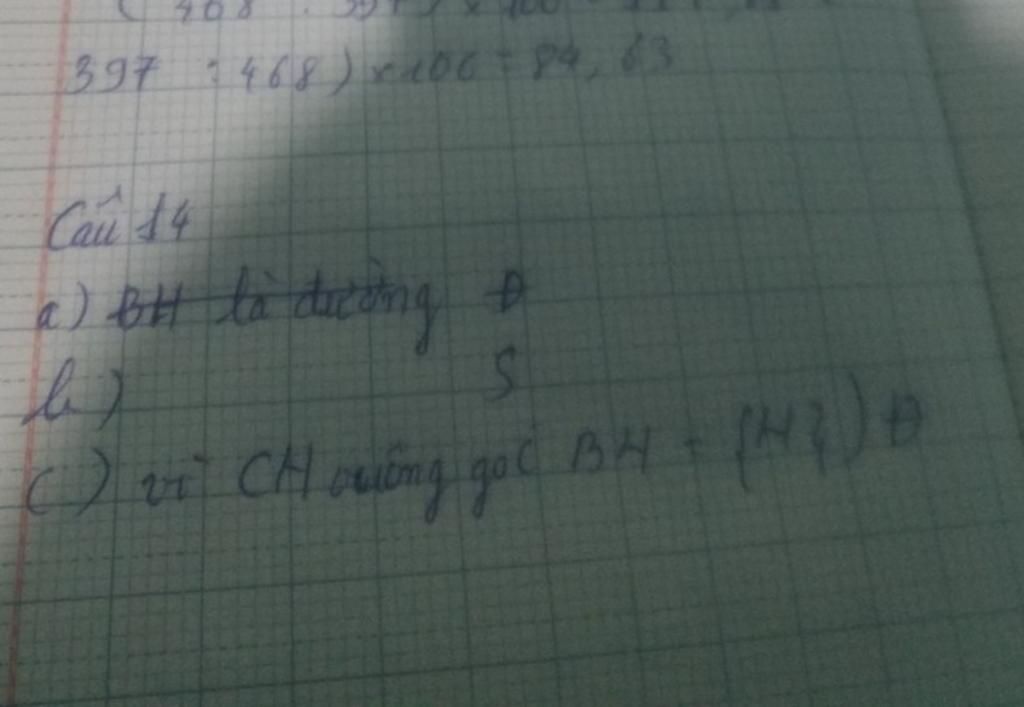 397 : 468) x 100 = 84,63
Câu 14
a) BH là đường Đ
b) S
c) vì CH vuông góc BH = {H}) Đ